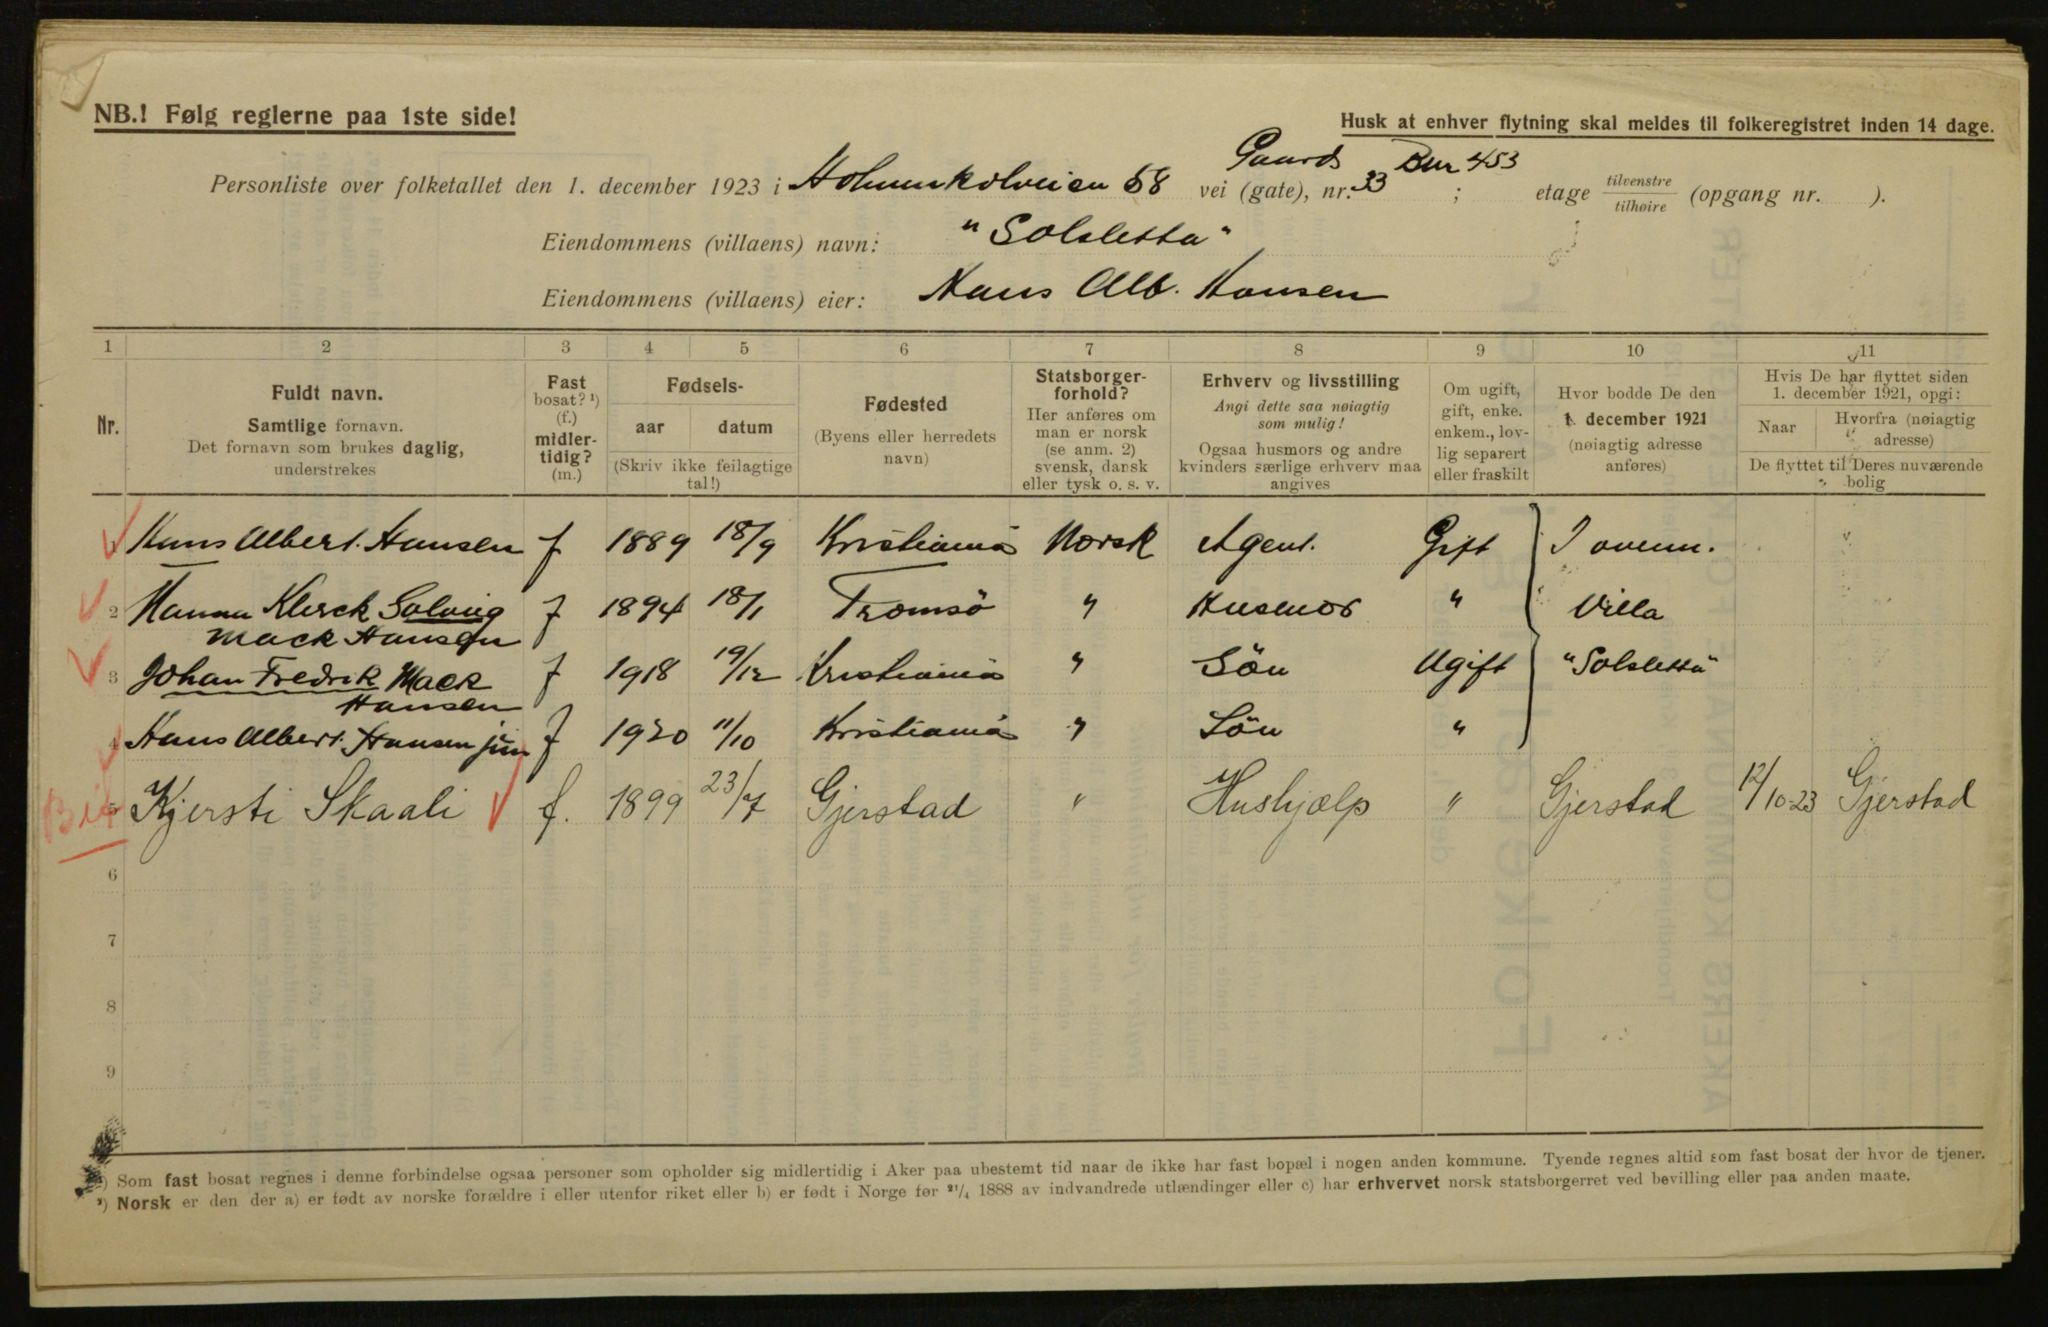 NB.! Følg reglerne paa 1ste side!
Husk at enhver flytning skal meldes til folkeregistret inden 14 dage.
Gaards Bnr 453
Personliste over folketallet den 1. december 1923 i Holmenkolveien 68 vei (gate), nr. 33 ; etage tilvenstre/tilhøire (opgang nr. ).
Eiendommens (villaens) navn: "Solsletta"
Eiendommens (villaens) eier: Hans Alb. Hansen
1 2 3 4 5 6 7 8 9 10 11
Nr.
Fuldt navn.
Samtlige fornavn.
Det fornavn som brukes daglig,
understrekes
Fast
bosat? ¹)
(f.)
midler-
tidig?
(m.)
Fødsels-
aar datum
(Skriv ikke feilagtige
tal!)
Fødested
(Byens eller herredets
navn)
Statsborger-
forhold?
Her anføres om
man er norsk
(se anm. 2)
svensk, dansk
eller tysk o. s. v.
Erhverv og livsstilling
Angi dette saa nøiagtig
som mulig!
Ogsaa husmors og andre
kvinders særlige erhverv maa
angives
Om ugift,
gift, enke.
enkem., lov-
lig separert
eller fraskilt
Hvor bodde De den
1. december 1921
(nøiagtig adresse
anføres)
Hvis De har flyttet siden
1. december 1921, opgi:
Naar Hvorfra (nøiagtig
adresse)
De flyttet til Deres nuværende
bolig
1 Hans Albert. Hansen f 1889 18/9 Kristiania Norsk Agent. Gift I ovenn.
2 Hanna Klerck Solveig f 1894 18/1 Tromsö " Husmor " Villa
Mack Hansen
3 Johan Fredrik Mack f 1918 19/12 Kristiania " Sön Ugift "Solsletta"
Hansen
4 Hans Albert. Hansen jun f 1920 11/10 Kristiania " Sön "
5 Kjersti Skaali f. 1899 23/7 Gjerstad " Hushjælp " Gjerstad 12/10-23 Gjerstad
6
7
8
9
¹) Som fast bosat regnes i denne forbindelse ogsaa personer som opholder sig midlertidig i Aker paa ubestemt tid naar de ikke har fast bopæl i nogen anden kommune. Tyende regnes altid som fast bosat der hvor de tjener.
²) Norsk er den der a) er født av norske forældre i eller utenfor riket eller b) er født i Norge før ²¹/₄ 1888 av indvandrede utlændinger eller c) har erhvervet norsk statsborgerret ved bevilling eller paa anden maate.